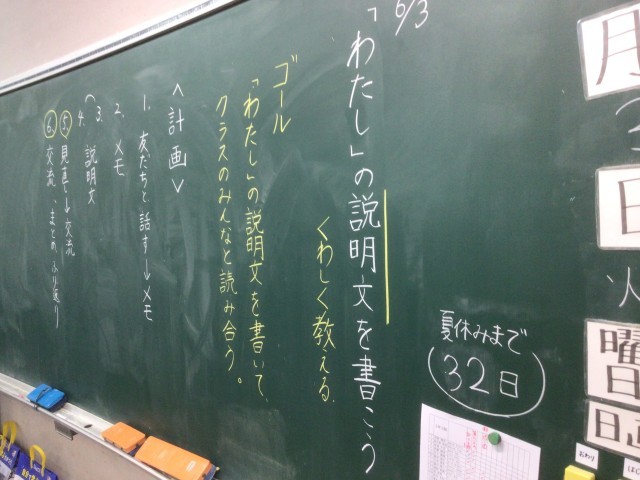 月
日
曜
日
日直
6/3
「わたし」の説明文を書こう
くわしく教える
ゴール
「わたし」の説明文を書いて、
クラスのみんなと読み合う。
<計画>
1. 友だちと話す→メモ
2. メモ
3.
4. 説明文
5. 見直し→交流
6. 交流、まとめ、ふり返り
夏休みまで
(32日)